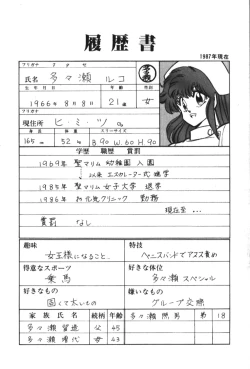 履歴書
1987年現在
フリガナ タタセ
氏名 多々瀬 ルコ
生年月日 年齢 性別
1966年8月8日 21歳 女
フリガナ
現住所 ヒ・ミ・ツ
身長 体重 スリーサイズ
165cm 52kg B.90 W.60 H.90
学歴 職歴 賞罰
1969年 聖マリム幼稚園入園
↓以来 エスカレーター式進学
1985年 聖マリム女子大学 退学
1986年 勤務
現在至…
賞罰 なし
趣味
女王様になること。
特技
得意なスポーツ
乗馬
好きな体位
多々瀬スペシャル
好きなもの
固くて太いもの
嫌いなもの
グループ交際
家族氏名 続柄 年齢
多々瀬 照男 弟 18
父 45
母 43